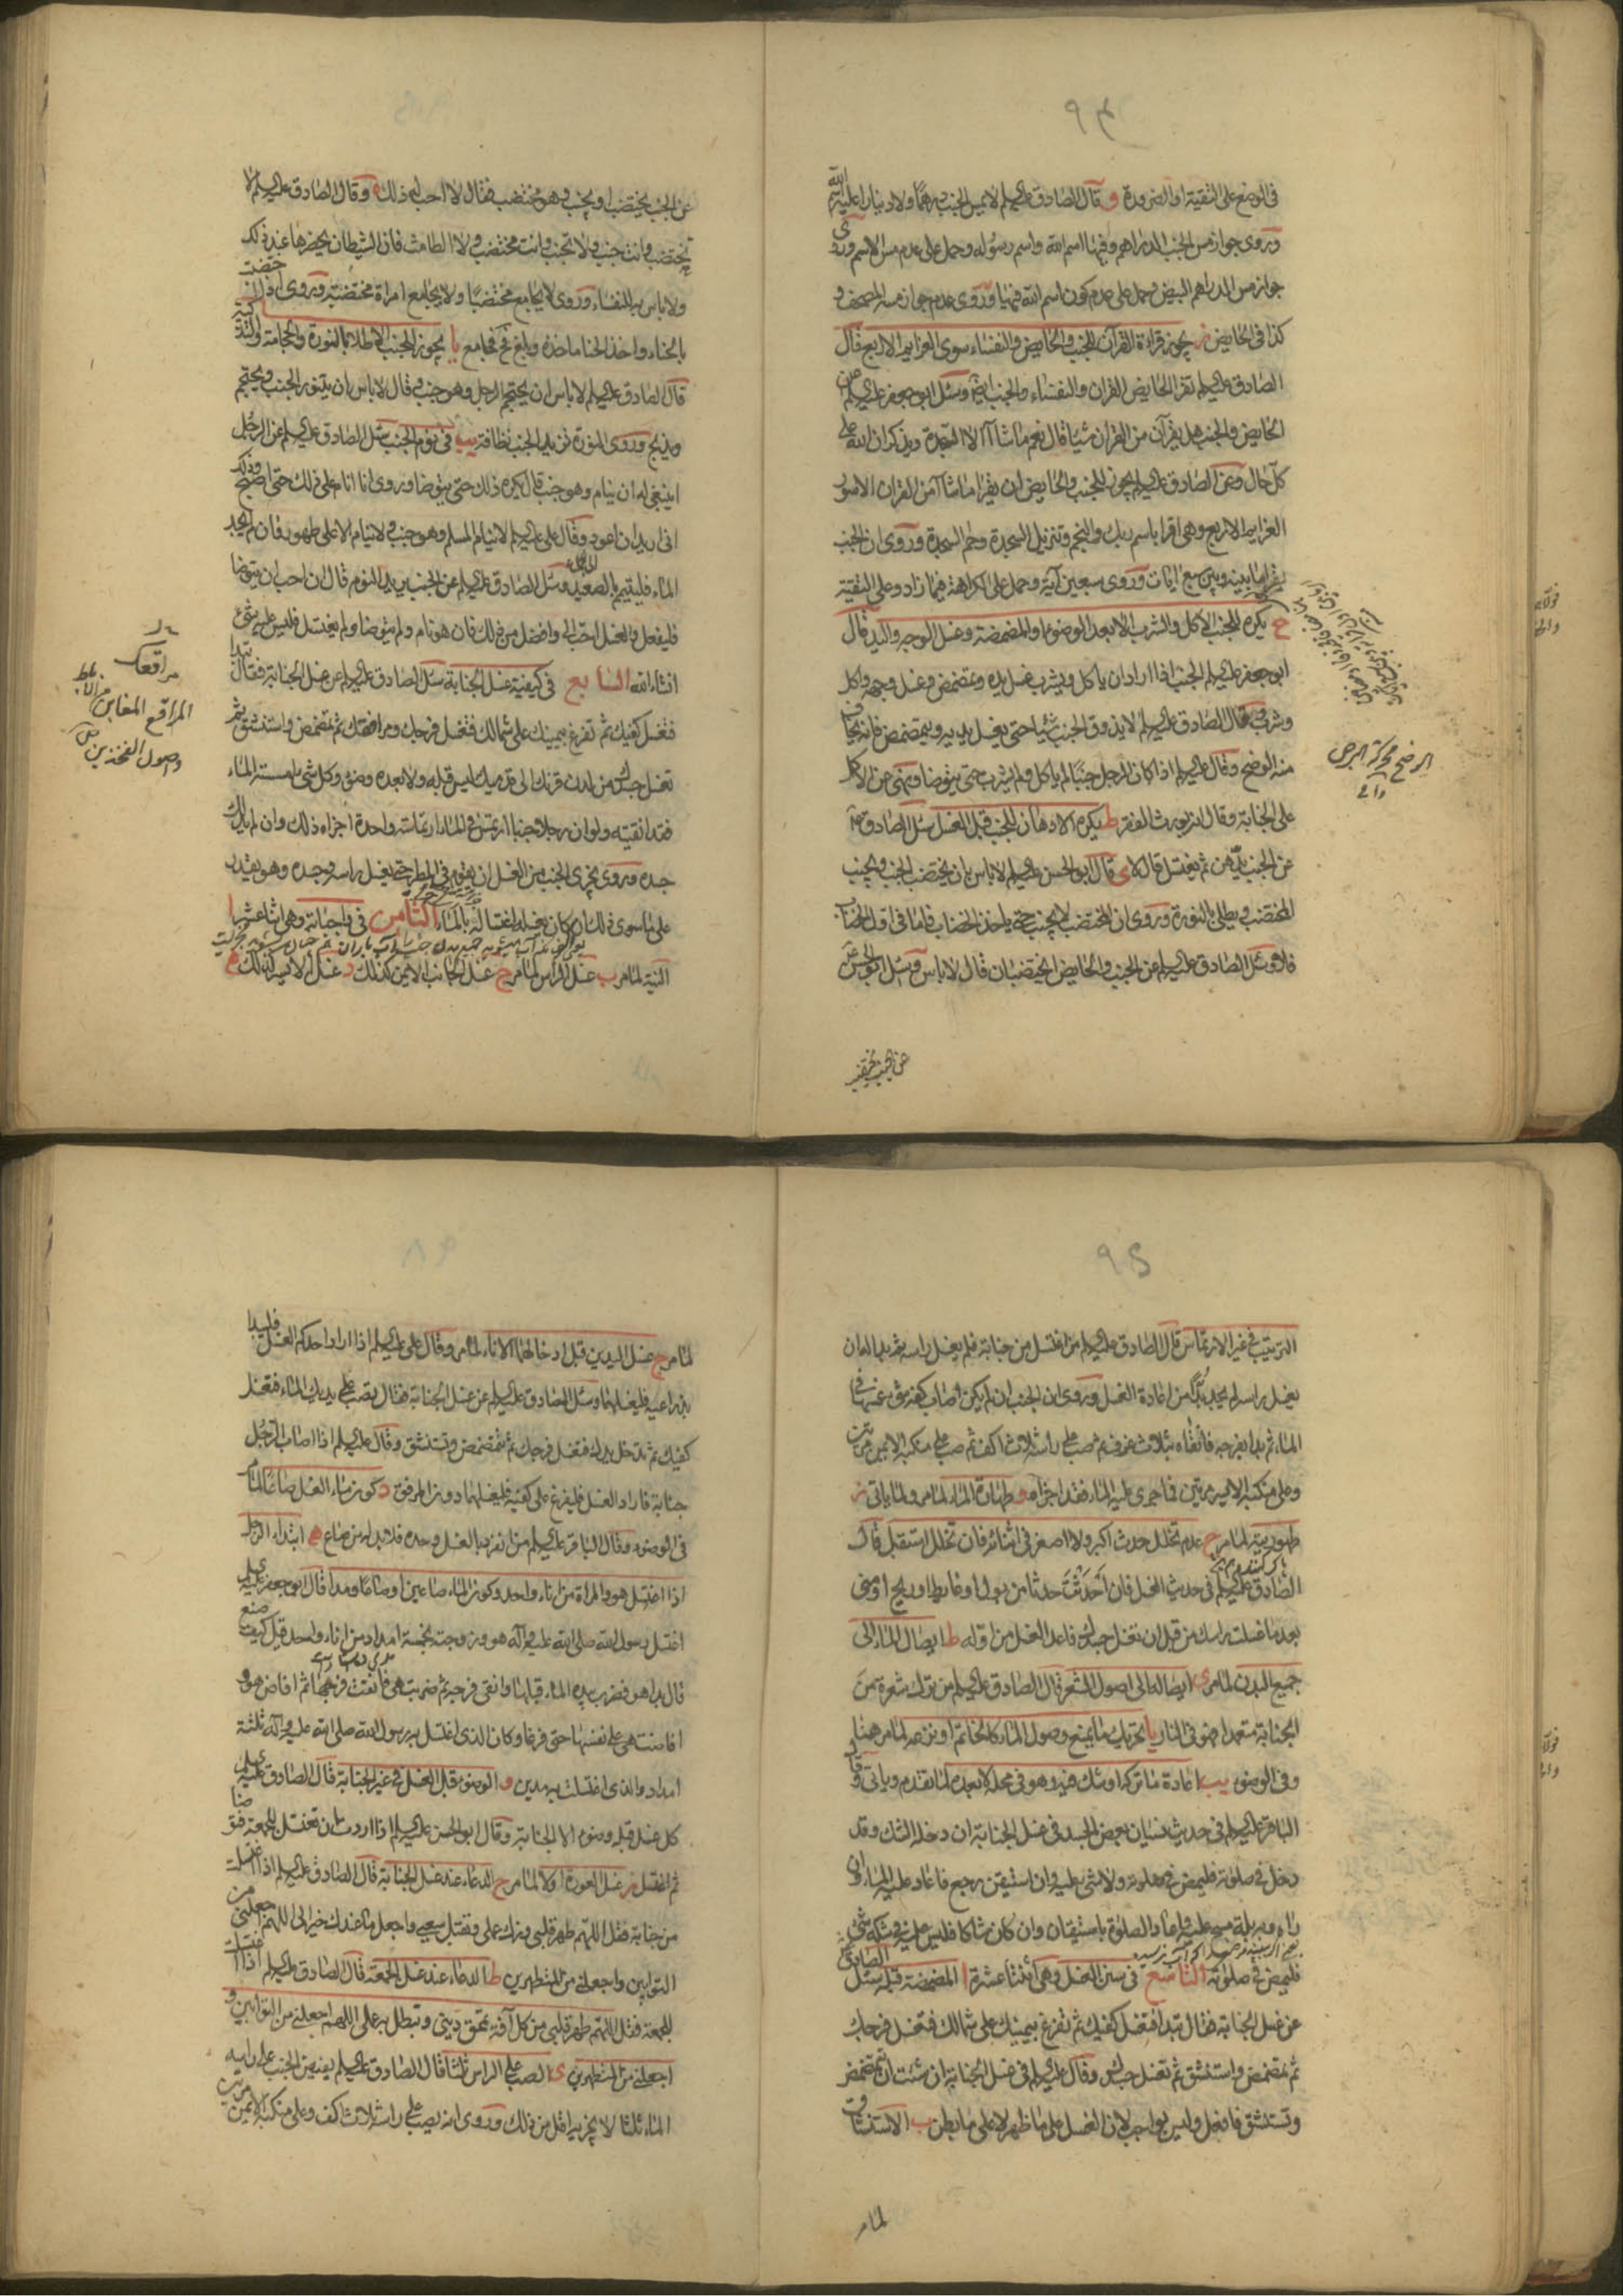 ٩٤
في الوضع على التقية او الضرورة و قال الصادق عليه السلم لا يمس الجنب درهما ولا دينارا عليه اسم الله
وروى جواز مس الجنب الدراهم وفيها اسم الله واسم رسوله وحمل على عدم مس الاسم وروى
جواز مس الدراهم البيض وحمل على عدم كون اسم الله فيها وروى عدم جواز مسه المصحف و
كذا في الحايض ز يجوز قراءة القرآن للجنب والحايض والنفساء سوى العزايم الاربع قال
الصادق عليه السلم تقرا الحايض القران والنفساء والجنب ايضا وسئل ابو جعفر عليه السلم عن
الحايض والجنب هل يقرآن من القران شيئا قال نعم ما شاآ الا السجدة ويذكران الله على
كل حال وعن الصادق عليه السلم يجوز للجنب والحايض ان يقرا ما شاآ من القران الا سور
العزايم الاربع وهي اقرا باسم ربك والنجم وتنزيل السجدة وحم السجدة وروى ان الجنب
يقرا ما بينه وبين سبع ايات وروى سبعين آية وحمل على الكراهة فيما زاد وعلى التقية
ح يكره للجنب الاكل والشرب الا بعد الوضوء او المضمضة وغسل الوجه واليد قال
ابو جعفر عليه السلم الجنب اذا اراد ان ياكل ويشرب غسل يده وتمضمض وغسل وجهه واكل
وشرب وقال الصادق عليه السلم لا يذوق الجنب شيئا حتى يغسل يديه ويتمضمض فانه يخاف
منه الوضح وقال عليه السلم اذا كان الرجل جنبا لم ياكل ولم يشرب حتى يتوضا ونهى عن الاكل
على الجنابة وقال انه يورث الفقر ط يكره الادهان للجنب قبل الغسل سئل الصادق ع
عن الجنب يدهن ثم يغتسل قال لا ى قال ابو الحسن عليه السلم لا باس بان يختضب الجنب ويجنب
المختضب ويطلي بالنورة وروى ان المختضب لا يجنب حتى ياخذ الخضاب فاما في اول الخضاب
فلا وسئل الصادق عليه السلم عن الجنب والحايض ايختضبان قال لا باس وسئل ابو الحسن ع
الوضح محركة البرص
عن الجنب يختضب
عن الجنب يختضب او يجنب وهو مختضب فقال لا احب له ذلك وقال الصادق عليه السلم لا
تختضب وانت جنب ولا تجنب وانت مختضب ولا الطامث فان الشيطان يحضرها عند ذلك
ولا باس به للنفساء وروى لا يجامع مختضبا ولا يجامع امراة مختضبة وروى اذا اختضبت
بالحناء واخذ الحنا ماخذه وبلغ فح فجامع يا يجوز للجنب الاطلاء بالنورة والحجامة والتذكية
قال الصادق عليه السلم لا باس ان يحتجم الرجل وهو جنب وقال لا باس ان يتنور الجنب ويحتجم
ويذبح وروى النورة تزيد الجنب نظافة يب في نوم الجنب سئل الصادق عليه السلم عن الرجل
اينبغي له ان ينام وهو جنب قال يكره ذلك حتى يتوضا وروى انا انام على ذلك حتى اصبح وذلك
اني اريد ان اعود وقال علي عليه السلم لا ينام المسلم وهو جنب ولا ينام الا على طهور فان لم يجد
الماء فليتيمم بالصعيد وسئل الصادق عليه السلم عن الجنب يريد النوم قال ان احب ان يتوضا
فليفعل والغسل احب الي وافضل من ذلك فان هو نام ولم يتوضا ولم يغتسل فليس عليه شئ
انشاء الله السابع في كيفية غسل الجنابة سئل الصادق عليه السلم عن غسل الجنابة فقال تبدا
فتغسل كفيك ثم تفرغ بيمينك على شمالك فتغسل فرجك ومرافقك ثم تمضمض واستنشق ثم
تغسل جسدك من لدن قرنك الى قدميك ليس قبله ولا بعده وضوء وكل شئ امسسته الماء
فقد انقيته ولو ان رجلا جنبا ارتمس في الماء ارتماسة واحدة اجزاه ذلك وان لم يدلك
جسده وروى يجزي الجنب من الغسل ان يقوم في المطر حتى يغسل راسه وجسده وهو يقدر
على ما سوى ذلك ان كان يغسله اغتساله بالماء الثامن في واجباته وهي اثنا عشر ا
النية لما مر ب غسل الراس لما مر ج غسل الجانب الايمن كذلك د غسل الايسر كذلك ه
المرافع المغابن من الاباط
واصول الفخذين
٩٥
الترتيب في غير الارتماس قال الصادق عليه السلم من اغتسل من جنابة فلم يغسل راسه ثم بدا له ان
يغسل راسه لم يجد بدا من اعادة الغسل وروى ان الجنب ان لم يكن اصاب كفه شئ غمسها في
الماء ثم بدا بفرجه فانقاه بثلاث غرف ثم صب على راسه ثلاث اكف ثم صب على منكبه الايمن مرتين
وعلى منكبه الايسر مرتين فما جرى عليه الماء فقد اجزاه و طهارة الماء لما مر ولما ياتي ز
طهورية لما مر ح عدم تخلل حدث اكبر ولا اصغر في اثنائه فان تخلل استقبل قال
الصادق عليه السلم في حديث الغسل فان احدثت حدثا من بول او غايط او ريح او مني
بعد ما غسلت راسك من قبل ان تغسل جسدك فاعد الغسل من اوله ط ايصال الماء الى
جميع البدن لما مر ى ايصاله الى اصول الشعر قال الصادق عليه السلم من ترك شعرة من
الجنابة متعمدا فهو في النار يا تحريك ما يمنع وصول الماء كالخاتم او نزعه لما مر هنا
وفي الوضوء يب اعادة ما تركه او شك فيه وهو في محله لا بعده لما تقدم وياتي وقال
الباقر عليه السلم في حديث نسيان بعض الجسد في غسل الجنابة ان دخله الشك وقد
دخل في صلوته فليمض في صلوته ولا شئ عليه وان استيقن رجع فاعاد عليه الماء وان
راه وبه بلة مسح عليه واعاد الصلوة باستيقان وان كان شاكا فليس عليه في شكه شئ
فليمض في صلوته التاسع في سنن الغسل وهي اثنتا عشرة ا المضمضة قبله سئل الصادق ع
عن غسل الجنابة فقال تبدا فتغسل كفيك ثم تفرغ بيمينك على شمالك فتغسل فرجك
ثم تمضمض واستنشق ثم تغسل جسدك وقال عليه السلم في غسل الجنابة ان شئت ان تمضمض
وتستنشق فافعل وليس بواجب لان الغسل على ما ظهر لا على ما بطن ب الاستنشاق
لما مر
لما مر ج غسل اليدين قبل ادخالهما الاناء لما مر وقال علي عليه السلم اذا اراد احدكم الغسل فليبدا
بذراعيه فليغسلهما وسئل الصادق عليه السلم عن غسل الجنابة فقال تصب على يديك الماء فتغسل
كفيك ثم تدخل يدك فتغسل فرجك ثم تمضمض وتستنشق وقال عليه السلم اذا اصاب الرجل
جنابة فاراد الغسل فليفرغ على كفيه فليغسلهما دون المرفق د كون ماء الغسل صاعا لما مر
في الوضوء وقال الباقر عليه السلم من انفرد بالغسل وحده فلا بد له من صاع ه ابتداء الرجل
اذا اغتسل هو والمراة من اناء واحد وكون الماء صاعين او صاعا ومدا قال ابو جعفر عليه السلم
اغتسل رسول الله صلى الله عليه وآله هو وزوجته بخمسة امداد من اناء واحد قيل كيف صنع
قال بدا هو فضرب بيده الماء قبلها وانقى فرجه ثم ضربت هي فانقت فرجها ثم افاض هو و
افاضت هي على نفسها حتى فرغا وكان الذي اغتسل به رسول الله صلى الله عليه وآله ثلثة
امداد والذي اغتسلت به مدين و الوضوء قبل الغسل في غير الجنابة قال الصادق عليه السلم
كل غسل قبله وضوء الا الجنابة وقال ابو الحسن عليه السلم اذا اردت ان تغتسل للجمعة فتوضا
ثم اغتسل ز غسل العورة اولا لما مر ح الدعاء عند غسل الجنابة قال الصادق عليه السلم اذا اغتسلت
من جنابة فقل اللهم طهر قلبي وزك عملي وتقبل سعيي واجعل ما عندك خيرا لي اللهم اجعلني من
التوابين واجعلني من المتطهرين ط الدعاء عند غسل الجمعة قال الصادق عليه السلم اذا اغتسلت
للجمعة فقل اللهم طهر قلبي من كل آفة تمحق ديني وتبطل به عملي اللهم اجعلني من التوابين و
اجعلني من المتطهرين ى الصب على الراس ثلثا قال الصادق عليه السلم يفيض الجنب على راسه
الماء ثلثا لا يجزيه اقل من ذلك وروى انه يصب على راسه ثلاث اكف وعلى منكبه الايمن مرتين